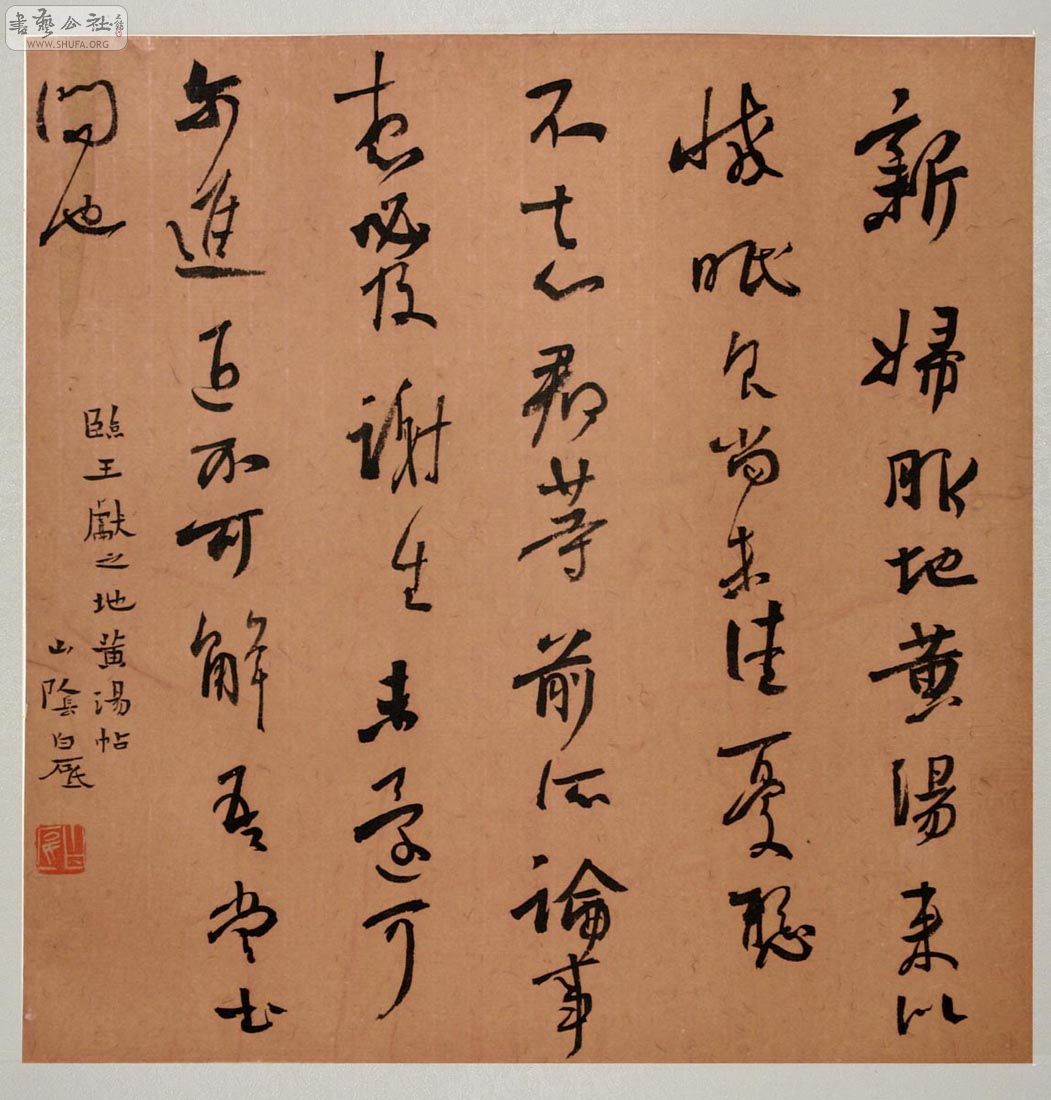 書藝公社
WWW.SHUFA.ORG
新婦服地黄湯来以
減眠食尚未佳憂懸
不去心君等前所論事
想必及謝生未還可
尔進退不可解吾當書
問也
臨王獻之地黄湯帖
山陰白